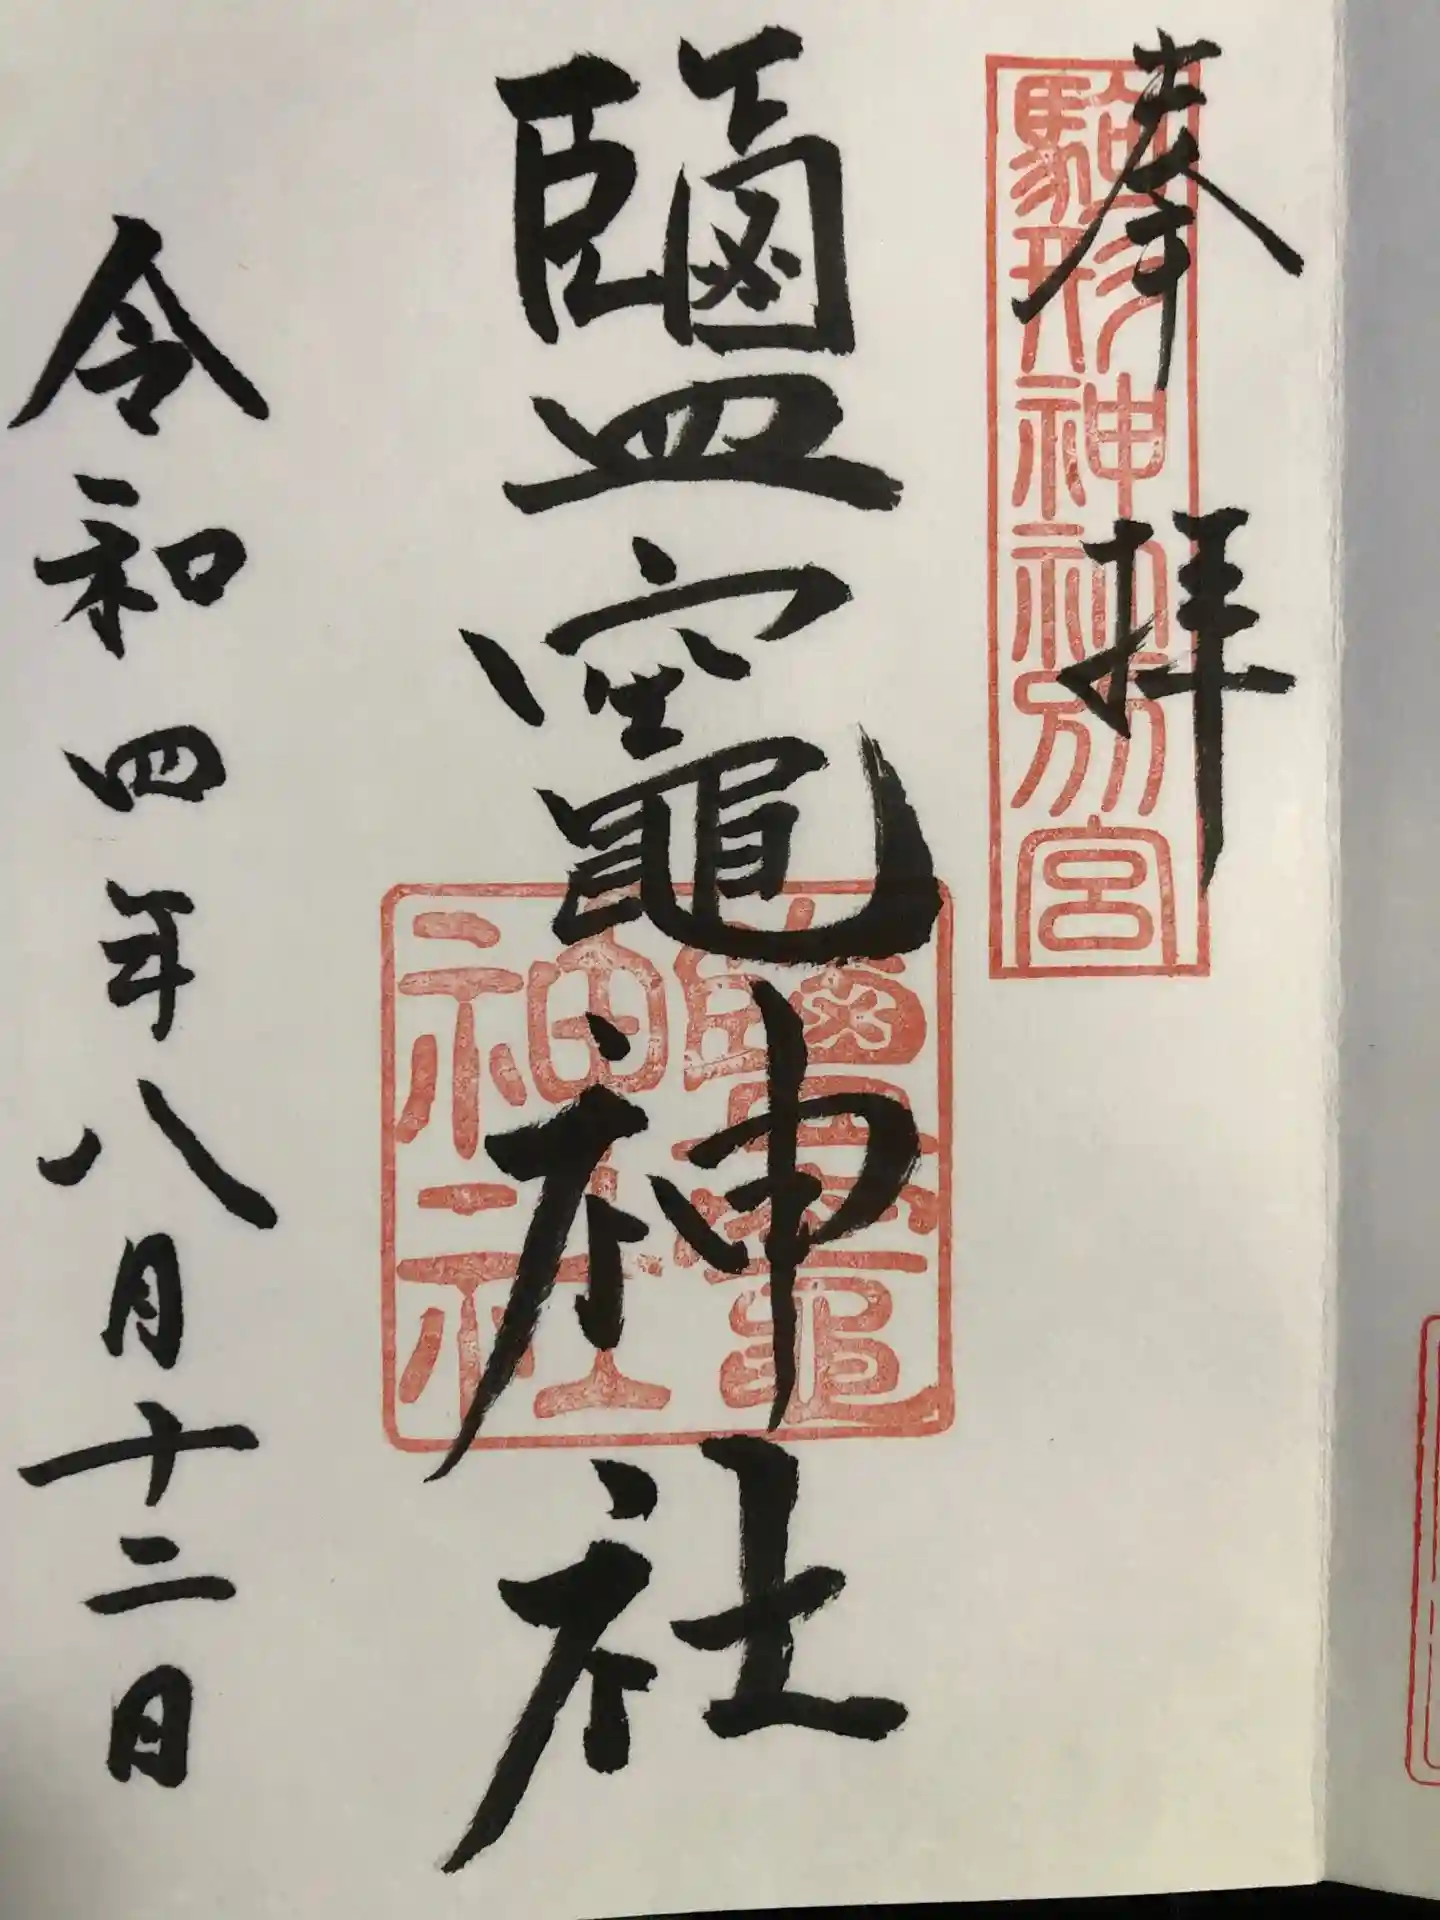 奉拝
駒形神社別宮
鹽竈神社
鹽竈
神社
令和四年八月十二日